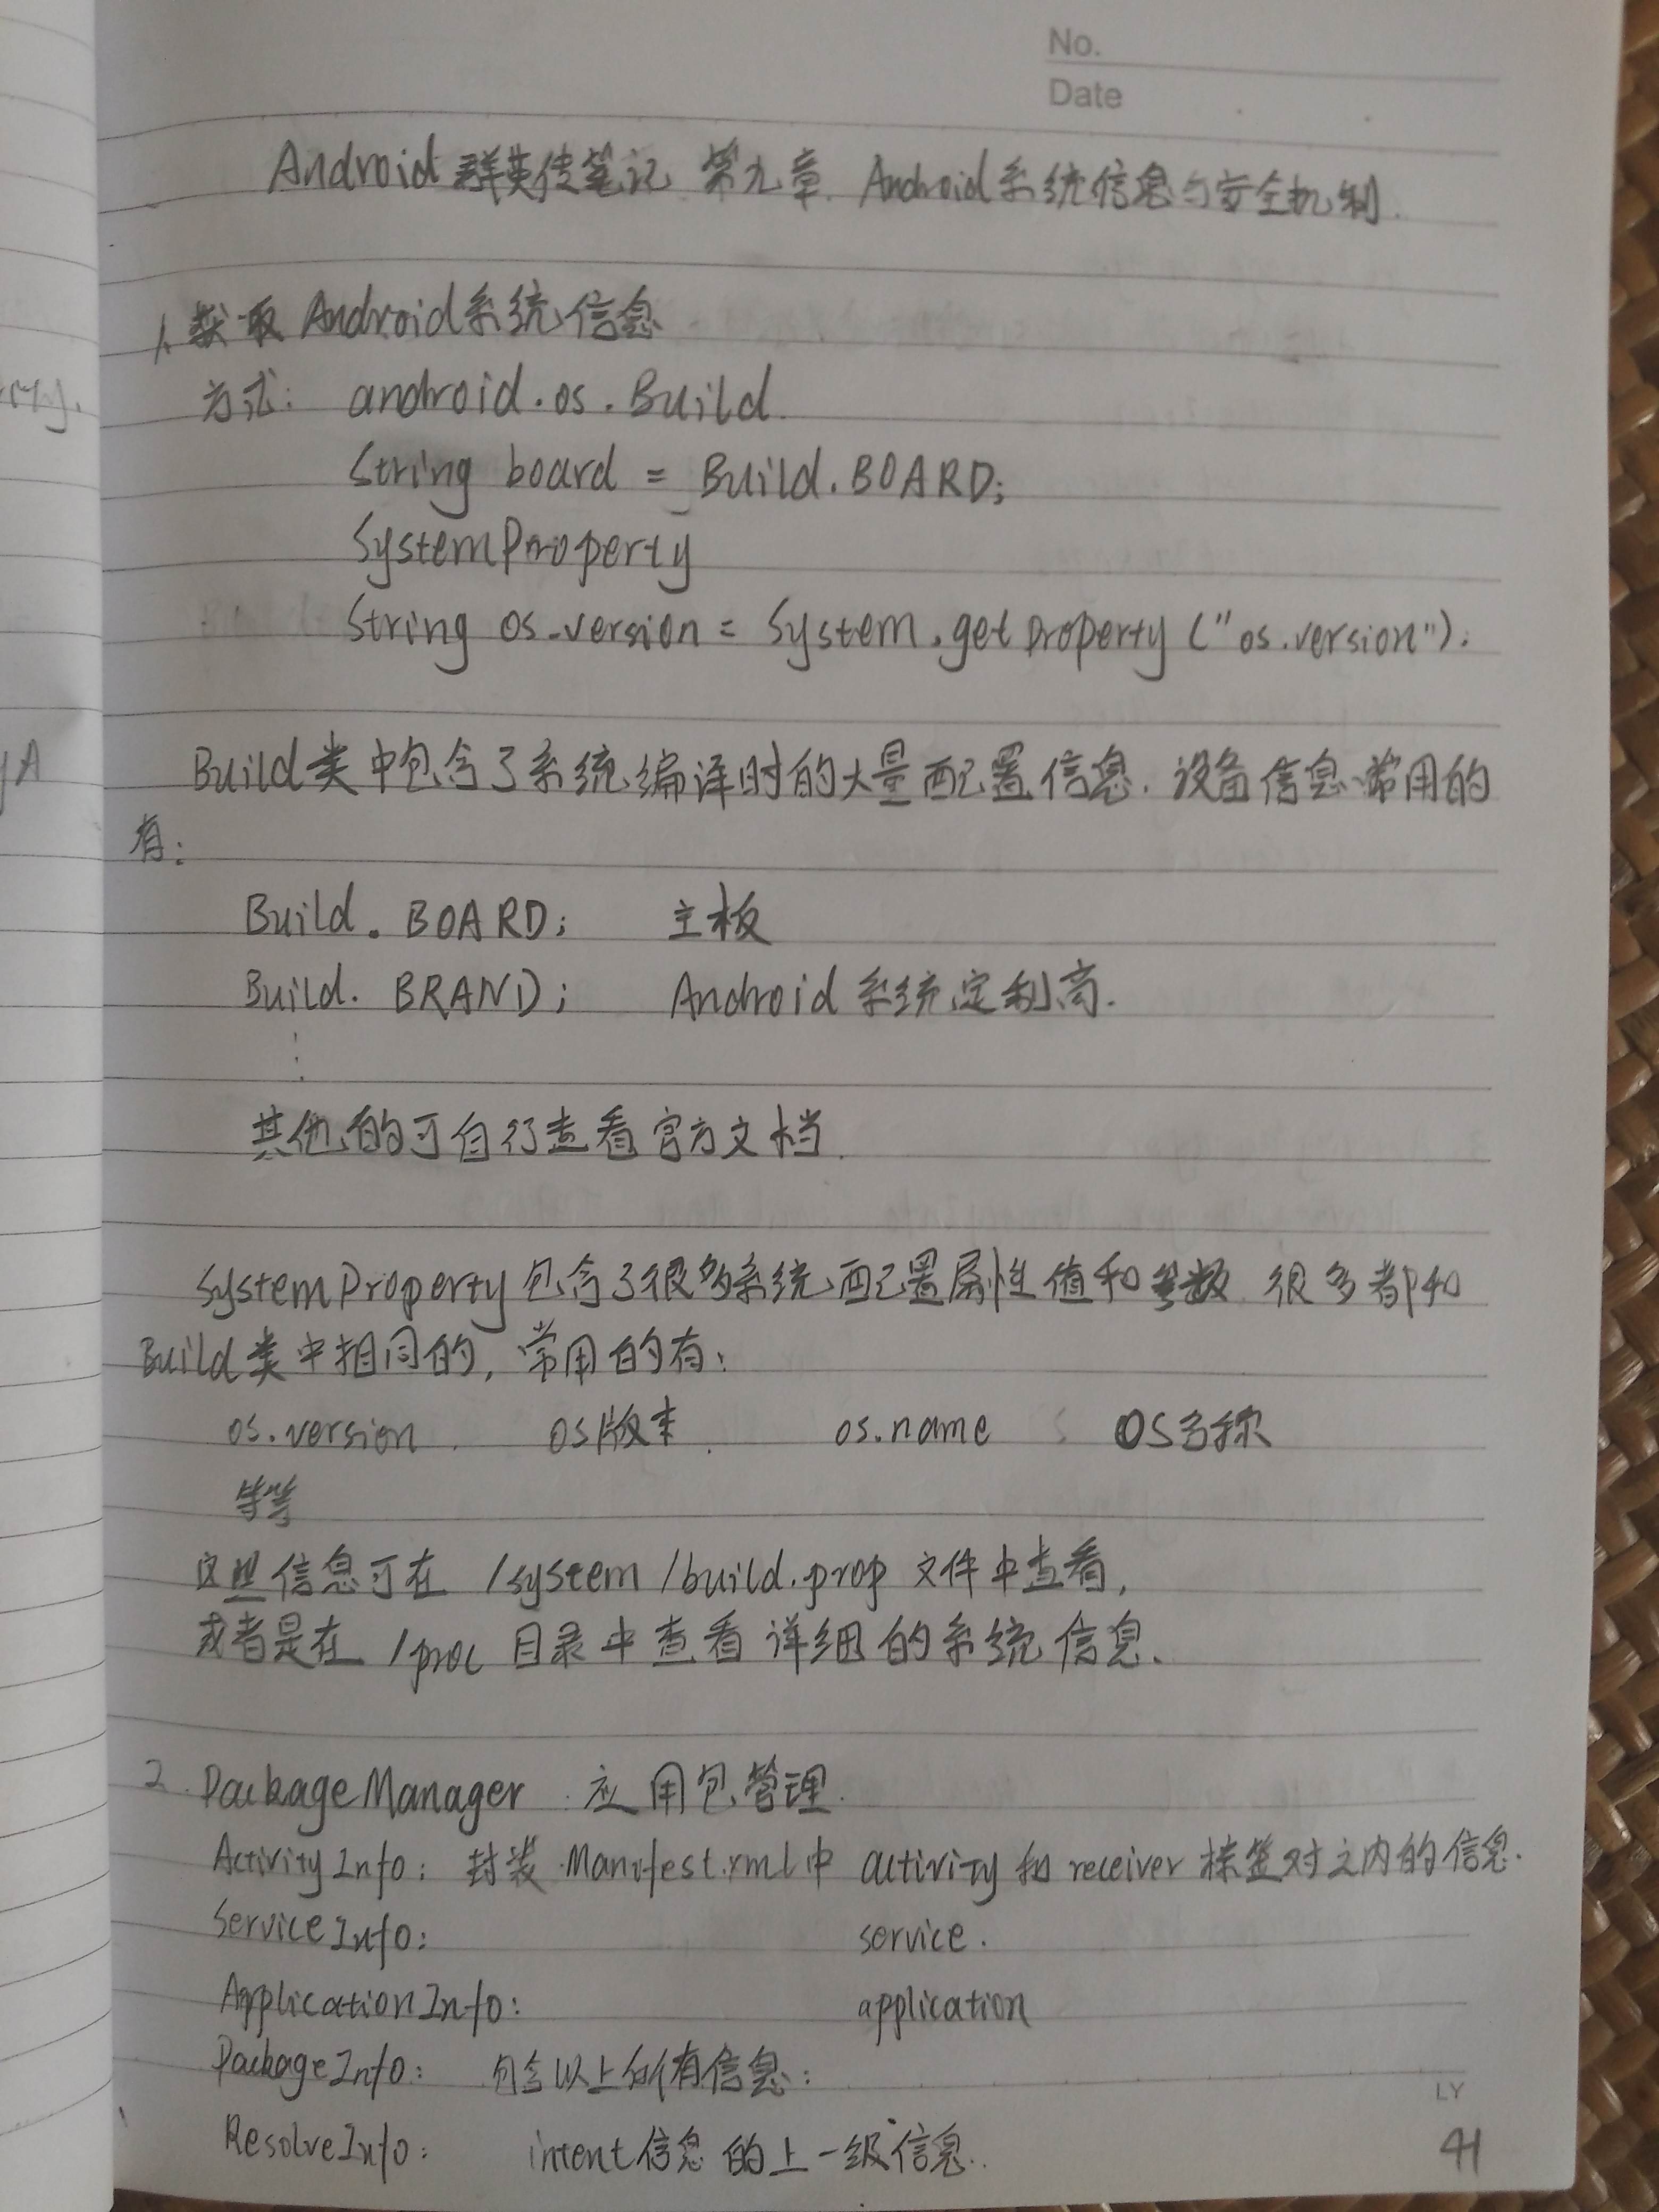 No.
Date
Android群英传笔记 第九章. Android系统信息与安全机制.
1. 获取Android系统信息
方式: android.os.Build.
String board = Build.BOARD;
SystemProperty
String os_version = System.getProperty("os.version");
Build类中包含了系统编译时的大量配置信息. 设备信息、常用的
有:
Build.BOARD; 主板
Build.BRAND; Android系统定制商.
⋮
其他的可自行查看官方文档.
SystemProperty包含了很多系统配置属性值和参数 很多都和
Build类中相同的, 常用的有:
os.version. OS版本. os.name OS名称
等等
这些信息可在 /system/build.prop 文件中查看,
或者是在 /proc 目录中查看详细的系统信息.
2. PackageManager 应用包管理.
ActivityInfo: 封装 Manifest.xml中 activity 和 receiver 标签对之内的信息.
ServiceInfo: service.
ApplicationInfo: application
PackageInfo: 包含以上所有信息:
ResolveInfo: intent信息的上一级信息.
LY
41